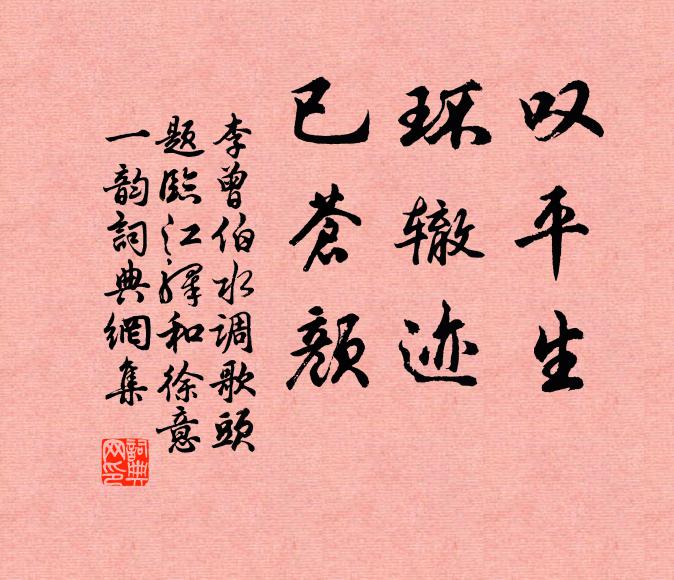 叹平生
环辙迹
已苍颜
李曾伯水调歌頭
题临江驛和徐意
一韵詞典網集
詞典
网印